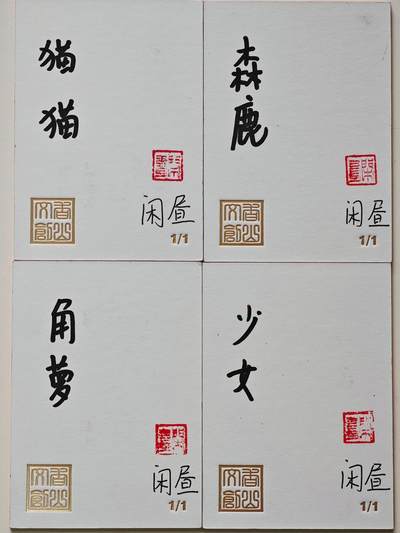 猫猫
闲昼
1/1
森鹿
闲昼
1/1
角萝
闲昼
1/1
少女
闲昼
1/1